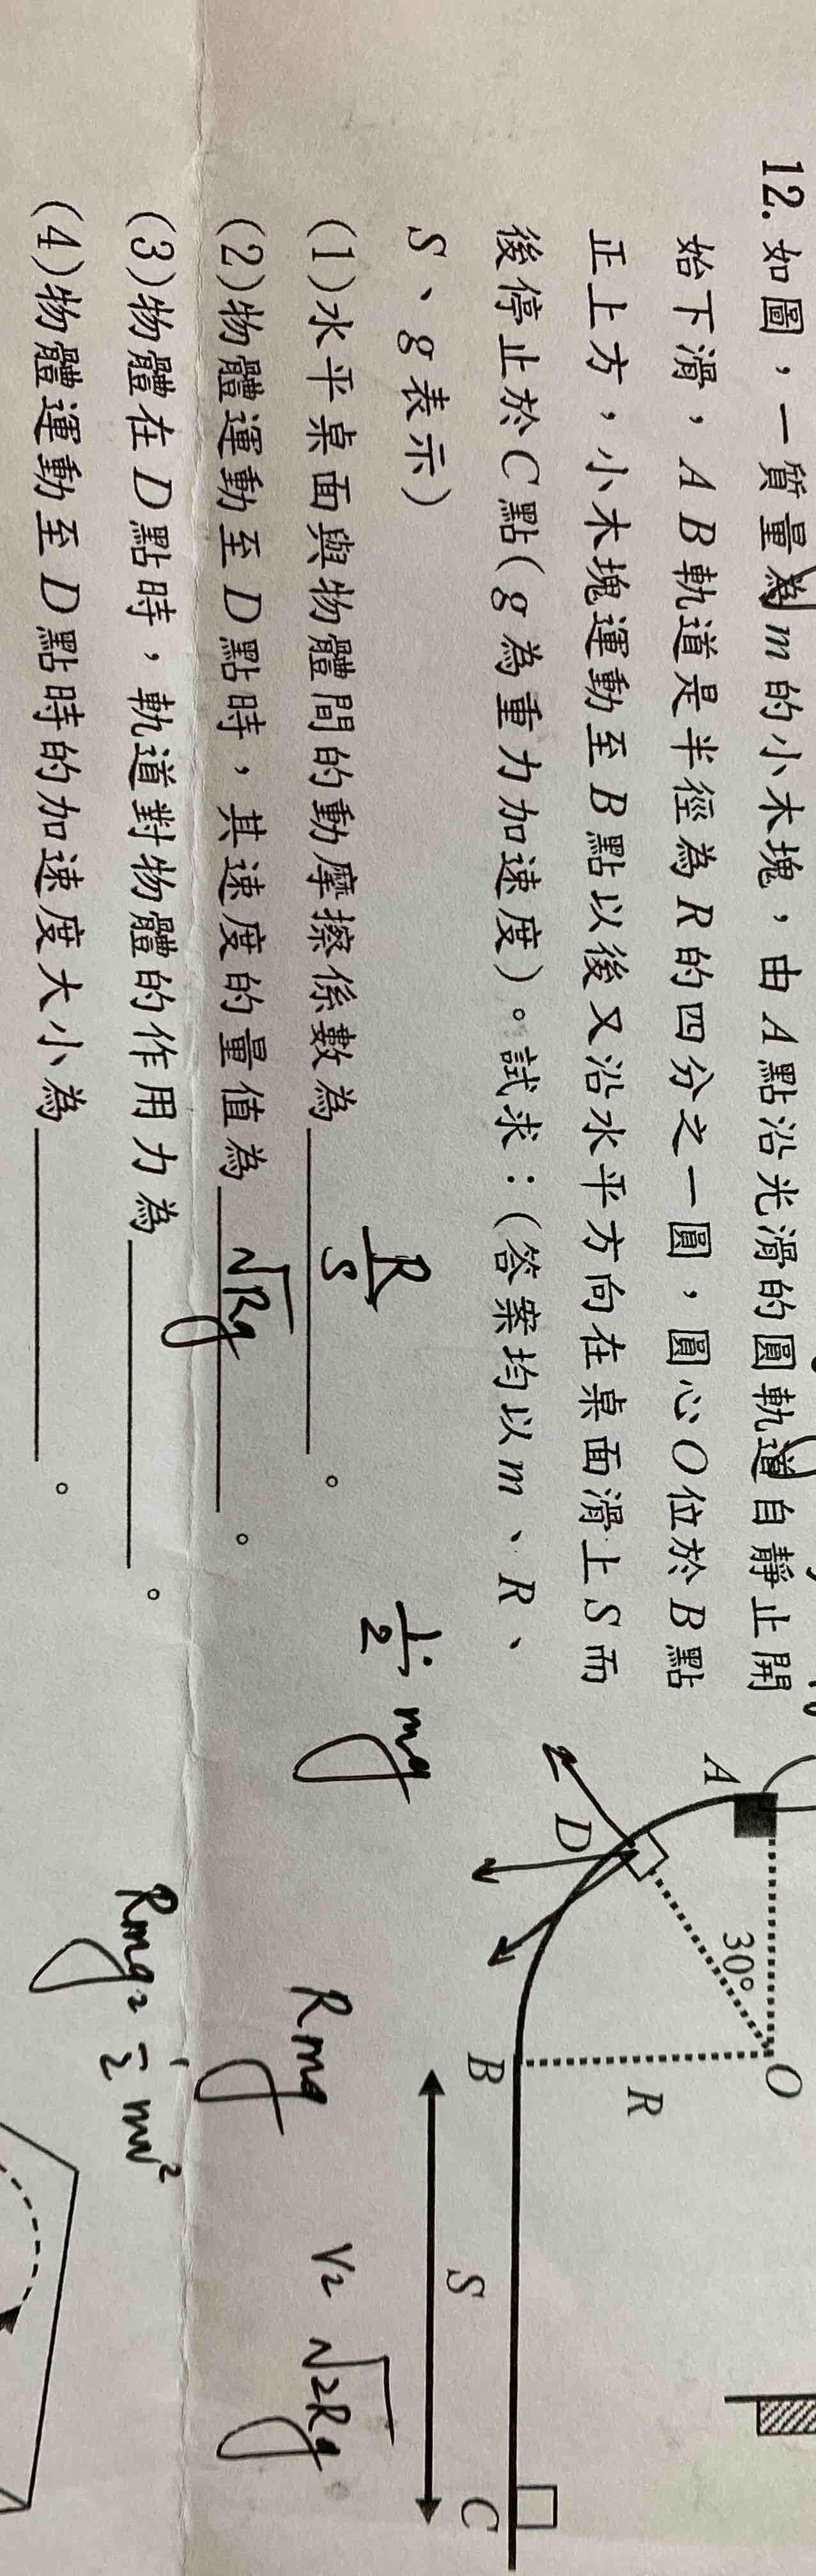 12.如圖，一質量為m的小木塊，由A點沿光滑的圓軌道自靜止開
始下滑，AB軌道是半徑為R的四分之一圓，圓心O位於B點
正上方，小木塊運動至B點以後又沿水平方向在桌面滑上S而
後停止於C點(g為重力加速度)。試求：(答案均以m、R、
S、g表示)
(1)水平桌面與物體間的動摩擦係數為 R/S 。
(2)物體運動至D點時，其速度的量值為 √Rg 。
(3)物體在D點時，軌道對物體的作用力為 。
(4)物體運動至D點時的加速度大小為 。
A
O
30°
D
R
B
S
C
1/2 mg
Rmg
V= √2Rg
Rmg= 1/2 mv²